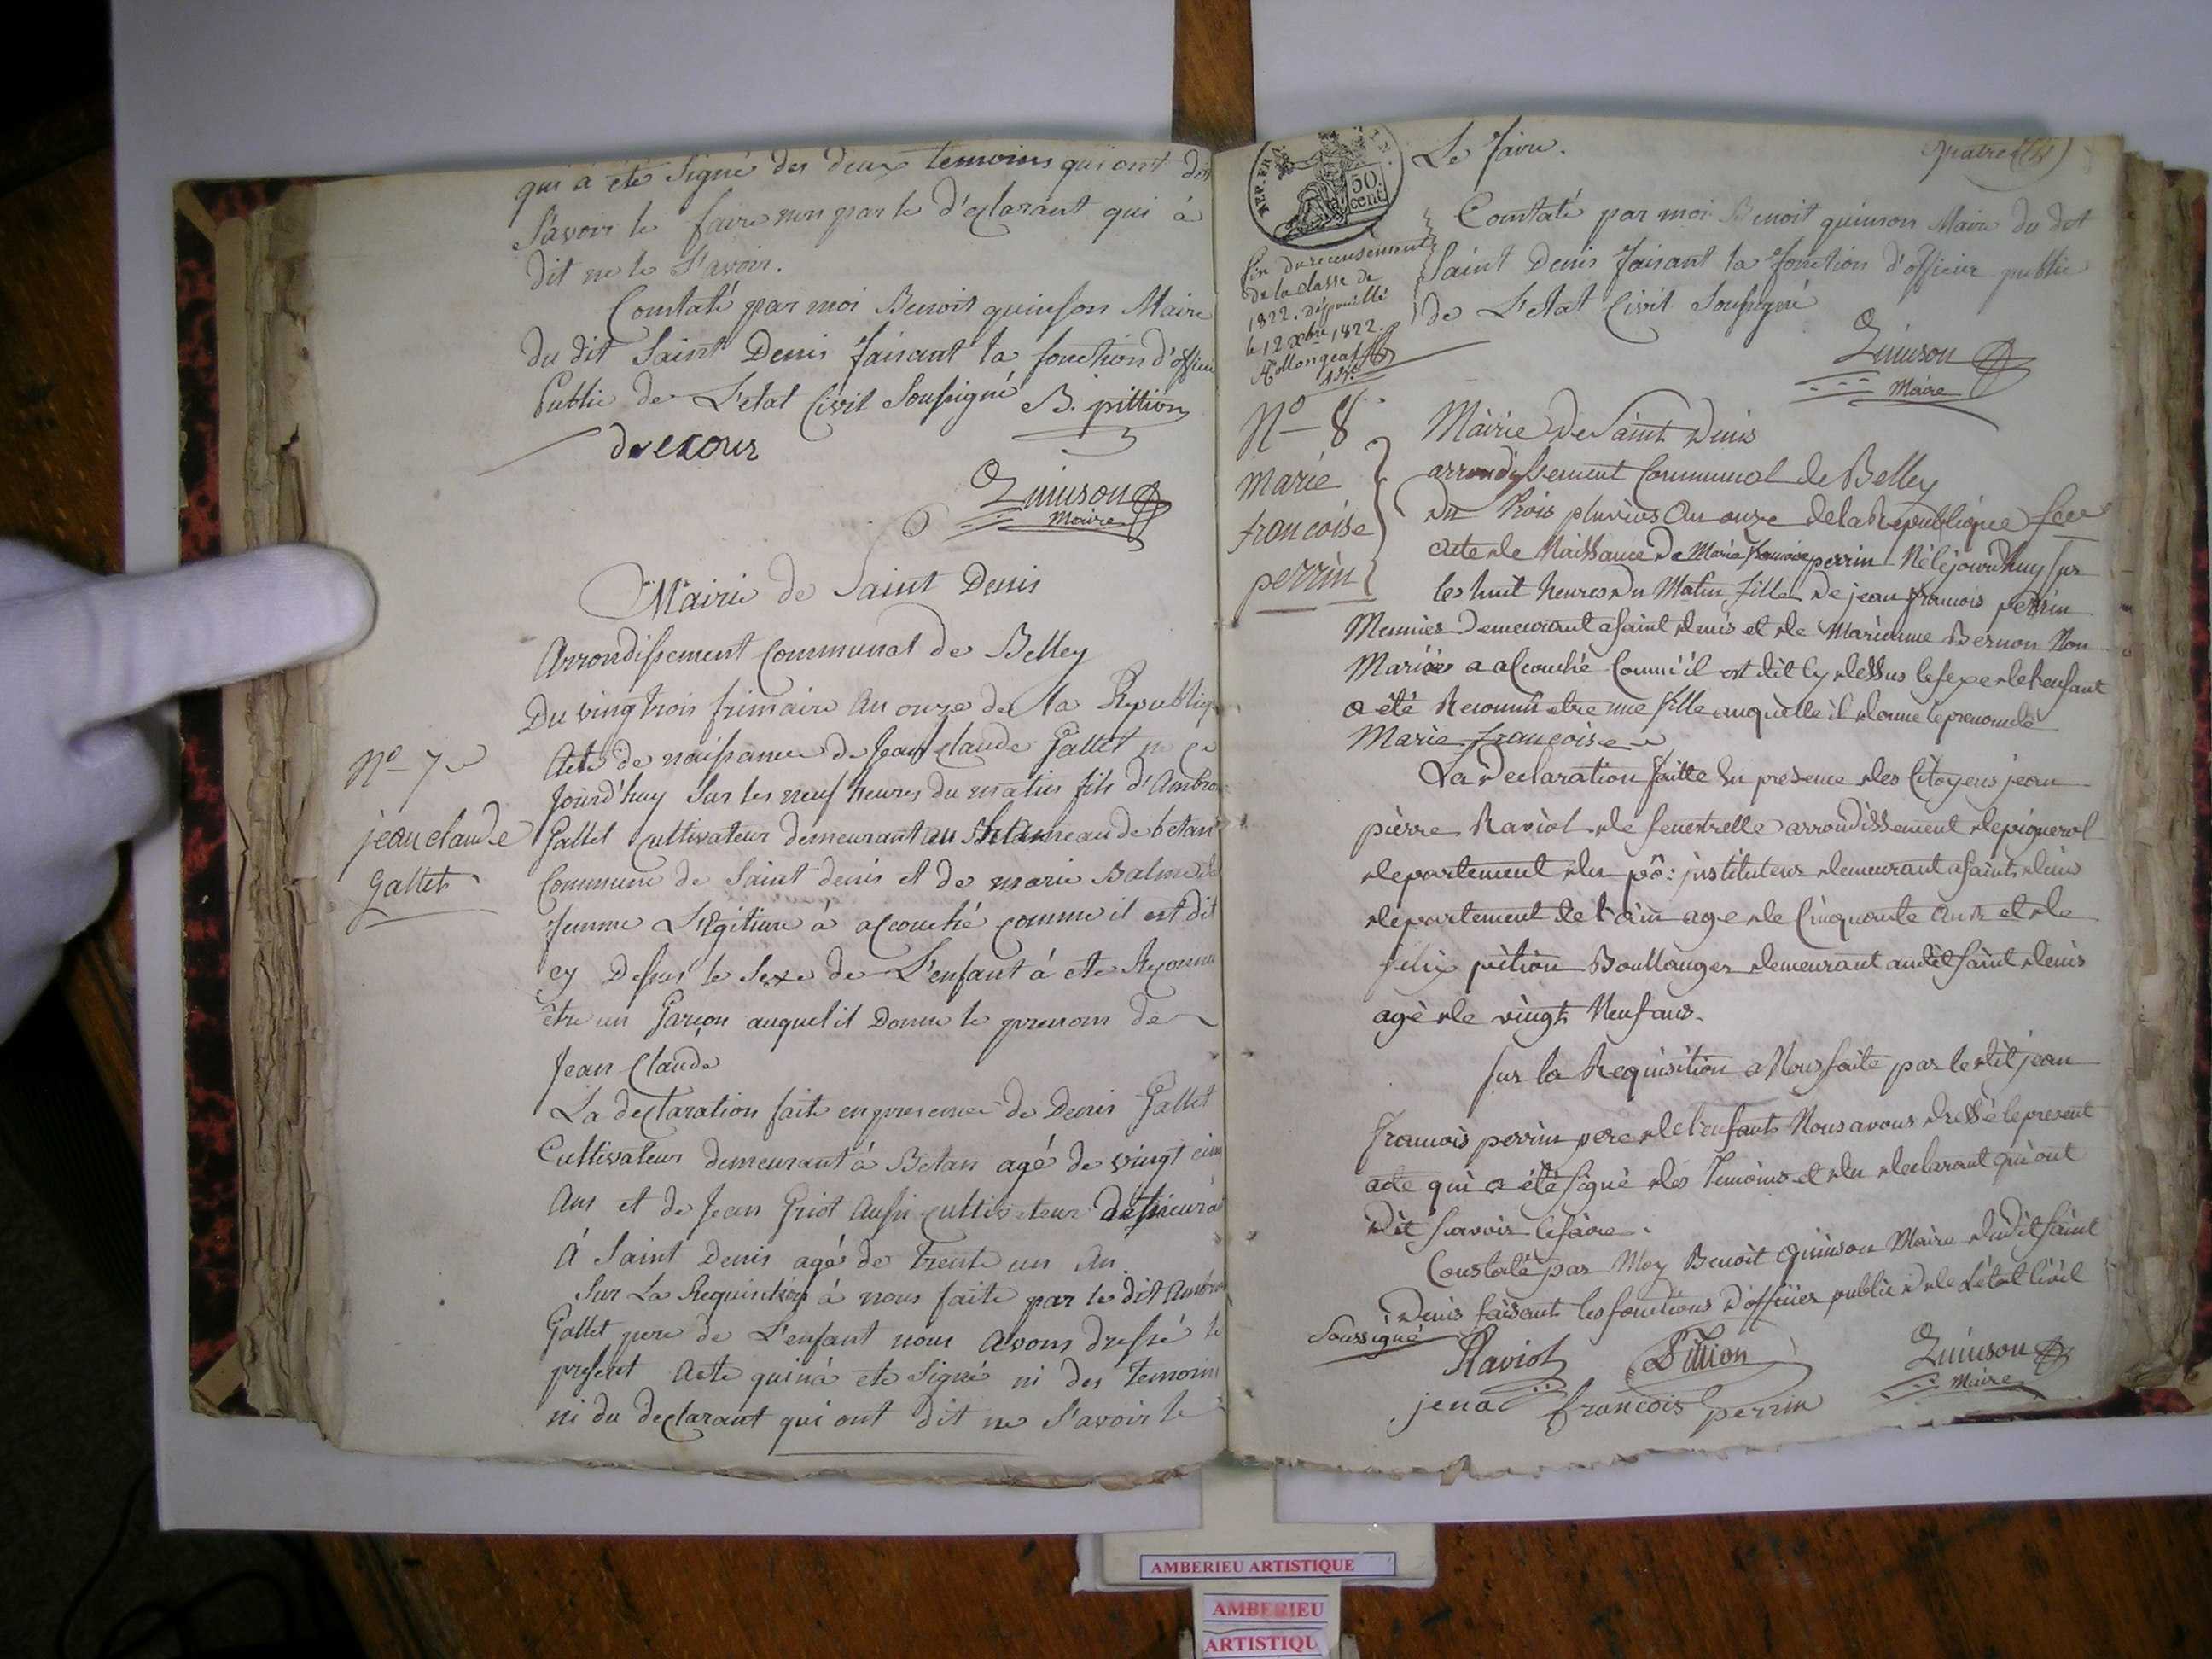 qui à été Signé des deux temoins qui ont dit
Savoir le faire non par le déclarant qui à
dit ne le Savoir.
Constaté par moi Benoit quinson Maire
du dit Saint Denis faisant la fonction d'officier
Public de L'etat Civil Soussigné B. pittion
Quinson
Maire
Mairie de Saint Denis
Arrondissement Communal de Belley
Du vingtrois frimaire an onze de la Republique
N° 7
Acte de naissance de Jean Claude Gallet né ce
jourd'huy Sur les neuf heures du matin fils d'Ambroise
jean claude
Gallet Cultivateur demeurant au hameau de betan
Gallet
Commune de Saint denis et de marie Balme
femme Légitime à acouché comme il est dit
cy Dessus le Sexe de L'enfant à ete Reconnu
être un Garçon auquel il Donne le prenom de
Jean Claude
La declaration faite en presence de Denis Gallet
Cultivateur demeurant à Betan agé de vingt cinq
Ans et de Jean Griot Aussi cultivateur
A Saint Denis agé de trente un An
Sur La Requisition à nous faite par le dit Ambroise
Gallet pere de L'enfant nous Avons dressé le
present Acte qui n'a ete Signé ni des temoins
ni du declarant qui ont dit ne Savoir le
REP. FRA.
50
cent
Le faire.
quatre (4)
Constaté par moi Benoit quinson Maire du dit
Saint Denis faisant la fonction d'officier public
de L'etat Civil Soussigné
fin du recensement
de la classe de
1822. dépouillé
le 12 xbre 1822.
Quinson
Maire
N° 8
Marie
francoise
perrin
Mairie De Saint Denis
arrondissement Communal de Belley
du trois pluvios an onze de la Republique
acte de Naissance De Marie francoise perrin Né le jourdhuy sur
les huit heures du Matin fille De jean francois perrin
Meunier Demeurant a saint denis et de Marianne Bernon Non
Mariée a acouché Comme il est dit cy dessus le sexe de lenfant
a été Reconnu etre une fille auquelle il donne le prenom de
Marie francoise
La declaration faitte en presence des Citoyens jean
pierre Raviol de fenestrelle arrondissement de pignerol
departement du pô: jnstituteur demeurant a saint denis
departement de l'ain age de Cinquante ans et de
felix pition Boullanger demeurant audit saint denis
agé de vingt Neuf ans.
sur la Requisition a Nous faite par le dit jean
francois perrin pere de l'enfant Nous avons dressé le present
acte qui a été signé des temoins et du declarant qui ont
dit scavoir le faire.
Constaté par Moy Benoit Quinson Maire dudit saint
Denis faisant les fonctions d'officier public de L'état Civil
Soussigné
Raviol
Pittion
Quinson
Maire
jena francois perrin
AMBERIEU ARTISTIQUE
AMBERIEU
ARTISTIQU